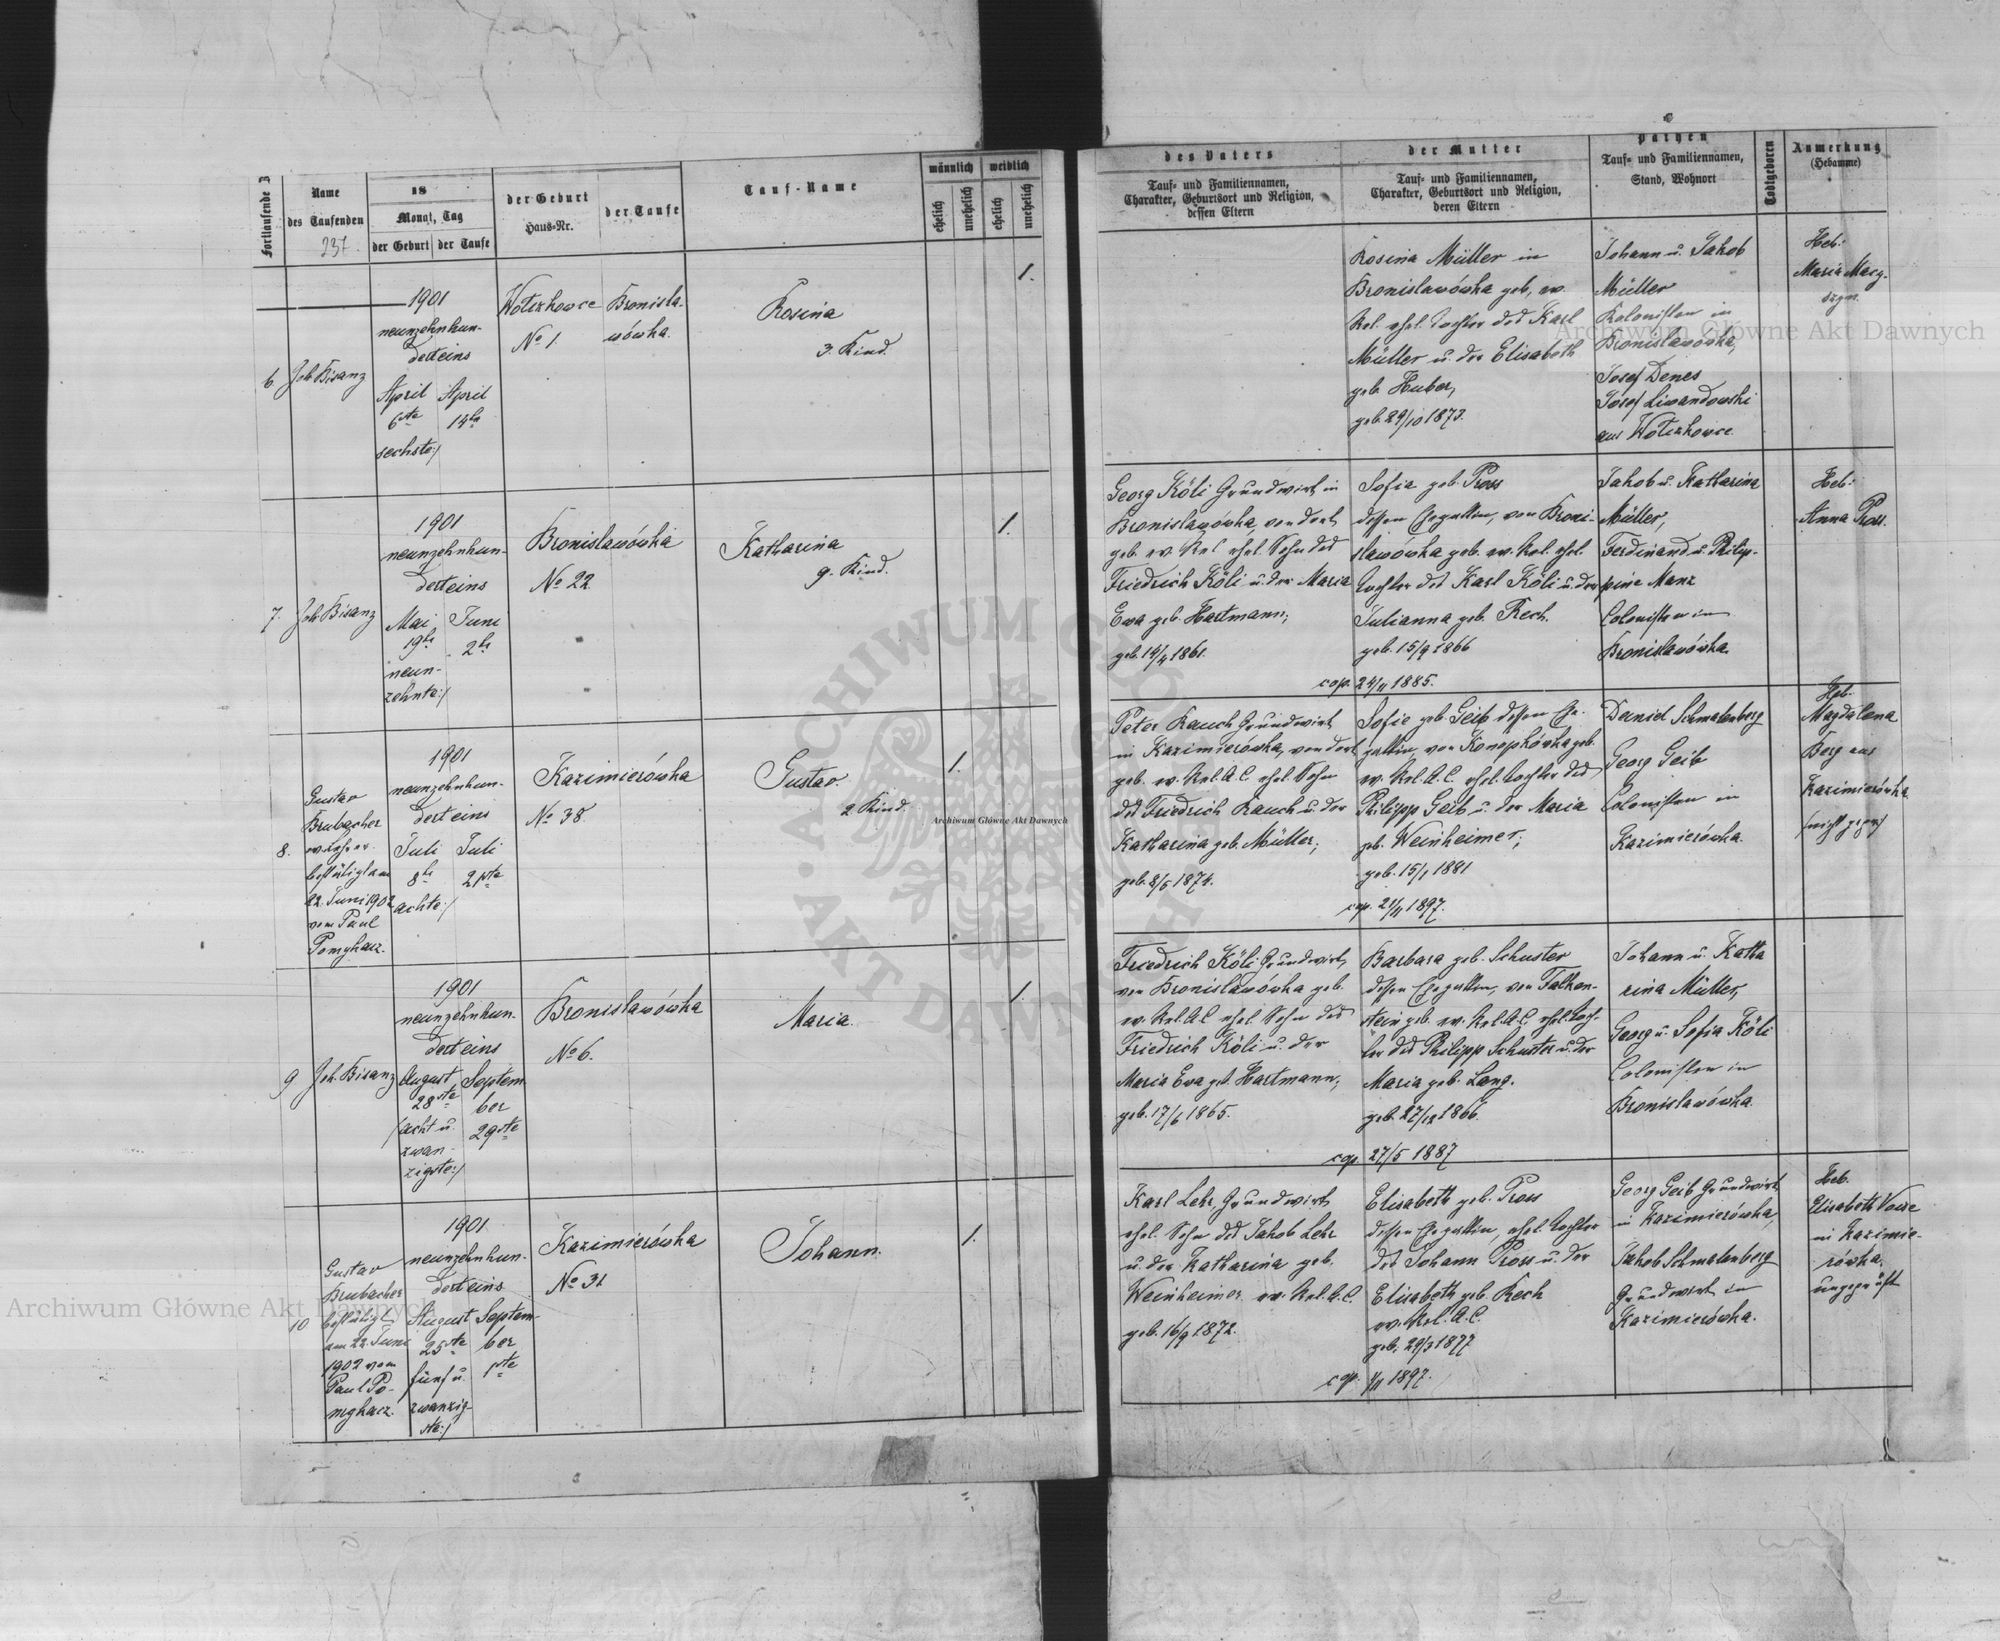 Fortlaufende Z
Name
des Taufenden
237.
18
Monat, Tag
der Geburt
der Taufe
der Geburt
Haus=Nr.
der Taufe
Tauf-Name
männlich
weiblich
ehelich
unehelich
ehelich
unehelich
des Vaters
Tauf= und Familiennamen,
Charakter, Geburtsort und Religion,
dessen Eltern
der Mutter
Tauf= und Familiennamen,
Charakter, Geburtsort und Religion,
deren Eltern
Pathen
Tauf= und Familiennamen,
Stand, Wohnort
Todtgeboren
Anmerkung
(Hebamme)
6
Joh Bisanz
1901
neunzehnhun-
derteins
April
6te
sechste:/
April
14te
Wolczkowce
No 1
Bronisla-
wówka.
Rosina
3. Kind.
1.
Rosina Müller in
Bronislawówka geb, ev.
Rel. ehel. Tochter des Karl
Müller u. der Elisabeth
geb. Huber,
geb. 29/10 1873.
Johann u. Jakob
Müller
Kolonisten in
Bronislawówka,
Josef Denes
Józef Liwandowski
aus Wolczkowce.
Heb:
Maria
7.
Joh Bisanz
1901
neunzehnhun-
derteins
Mai
19te
neun-
zehnte:/
Juni
2te
Bronislawówka
No 22.
Katharina
9. Kind.
1.
Georg Köli Grundwirt in
Bronislawówka, von dort
geb. ev. Rel ehel. Sohn des
Friedrich Köli u. der Maria
Ewa geb. Hartmann;
geb. 14/4 1861.
Sofia geb. Pross
dessen Ehegattin, von Broni-
slawówka geb. ev. Rel. ehel.
Tochter des Karl Köli u. der
Julianna geb. Rech.
geb. 15/9 1866
cop. 24/11 1885.
Jakob u. Katharina
Müller,
Ferdinand u. Philip-
pine Manz
Colonisten in
Bronislawówka.
Heb:
Anna Pross.
8.
Gustav
Brubacher
bestätigt am
22. Juni 1902
vom Paul
Pomykacz.
1901
neunzehnhun-
derteins
Juli
8te
achte:/
Juli
21ste
Kazimierówka
No 38
Gustav.
2 Kind.
1.
Peter Rauch Grundwirt
in Kazimierówka, von dort
geb. ev. Rel. A.C. ehel. Sohn
des Friedrich Rauch u. der
Katharina geb. Müller;
geb. 8/5 1874.
Sofie geb. Geib dessen Ehe-
gattin, von Konopkówka geb.
ev. Rel. A.C. ehel. Tochter des
Philipp Geib u. der Maria
geb. Weinheimer;
geb. 15/1 1881
cop. 21/11 1897.
Daniel Schmalenberg
Georg Geib
Colonisten in
Kazimierówka.
Heb.
Magdalena
Berg aus
Kazimierówka
9
Joh. Bisanz
1901
neunzehnhun-
derteins
August
28ste
/acht u.
zwan-
zigste:/
Septem-
ber
29ste
Bronislawówka
No 6.
Maria.
1.
Friedrich Köli Grundwirt,
von Bronislawówka geb.
ev. Rel. A.C ehel. Sohn des
Friedrich Köli u. der
Maria Ewa geb. Hartmann;
geb. 17/6 1865.
Barbara geb. Schuster
dessen Ehegattin, von Falken-
stein geb. ev. Rel. A.C. ehel. Toch-
ter des Philipp Schuster u. der
Maria geb. Lang.
geb. 27/12 1866.
cop. 27/5 1887
Johann u. Katha
rina Müller,
Georg u. Sofia Köli
Colonisten in
Bronislawówka.
10
Gustav
Brubacher
bestätigt
am 22. Juni
1902 vom
Paul Po-
mykacz.
1901.
neunzehnhun-
derteins
August
25ste
fünf u.
zwanzig-
ste:/
Septem-
ber
1ste
Kazimierówka
No 31
Johann.
1.
Karl Lehr, Grundwirt,
ehel. Sohn des Jakob Lehr
u. der Katharina geb.
Weinheimer ev. Rel. A.C.
geb. 16/9 1872.
Elisabeth geb. Pross
dessen Ehegattin, ehel. Tochter
des Johann Pross u. der
Elisabeth geb. Rech
ev. Rel. A.C.
geb. 29/3 1877
cop. 1/11 1897.
Georg Geib Grundwirt
in Kazimierówka,
Jakob Schmalenberg
Grundwirt in
Kazimierówka.
Heb.
Elisabeth
in Kazimie-
rówka.
ungeprüft
Archiwum Główne Akt Dawnych
Archiwum Główne Akt Dawnych
Archiwum Główne Akt Dawnych